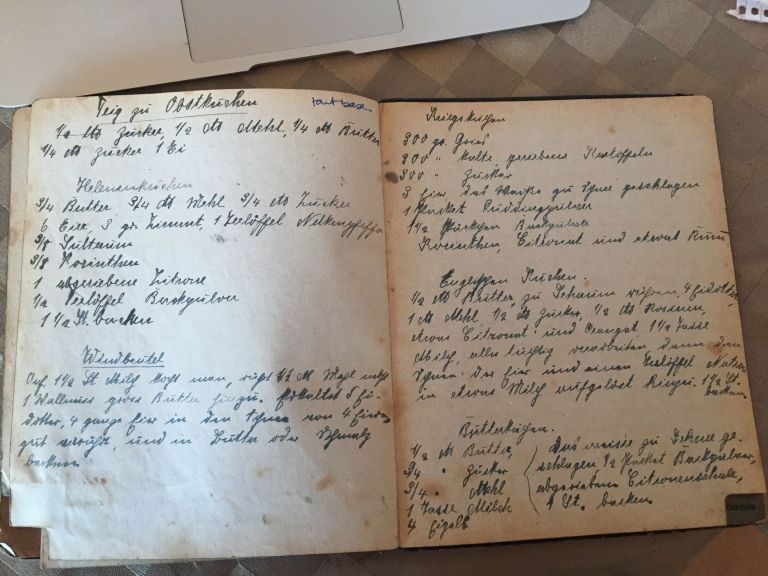 Teig zu Obstkuchen
1/2 ℔ Zucker, 1/2 ℔ Mehl, 1/4 ℔ Butter
1/4 ℔ Zucker 1 Ei
Helenenkuchen
3/4 Butter 3/4 ℔ Mehl 3/4 ℔ Zucker
6 Eier, 3 gr. Zimmt, 1 Teelöffel Nelkenpfeffer
3/8 Sultanin
3/8 Korinthen
1 abgeriebene Zitrone
1/2 Teelöffel Backpulver
1 1/2 St. backen
Windbeutel
1 1/2 St Milch kocht man, rührt ℔ Mehl
1 Wallnuss gross Butter hinzu. 5 Ei-
dotter, 4 ganze Eier in den von 4 Eiern
gut, und in Butter oder Schmalz
backen
Kriegskuchen
300 gr. Gries
300 " kalte, geriebene Kartoffeln
300 " Zucker
3 Eier, das Weiße zu Schnee geschlagen
1 Packet Puddingpulver
1 1/2 Backpulver
Korinthen, Citronat und etwas Rum
Englischen Kuchen.
1/2 ℔ Butter, zu Schaum rühren, 4 Eidotter,
1 ℔ Mehl 1/2 ℔ Zucker, 1/2 ℔ Rosinen,
etwas Citronat und Orangat 1 1/2 Tasse
Milch, alles tüchtig verarbeiten, dann den
Schnee der Eier und einen Teelöffel Natron
in etwas Milch aufgelöst hinzu. 1 1/2 St.
backen
Butterkuchen.
1/2 ℔ Butter,
3/4 " Zucker
3/4 " Mehl
1 Tasse Milch
4 Eigelb
Das weisse zu Schnee ge-
schlagen 1/2 Packet Backpulver,
abgeriebene Citronenschale,
1 St. backen